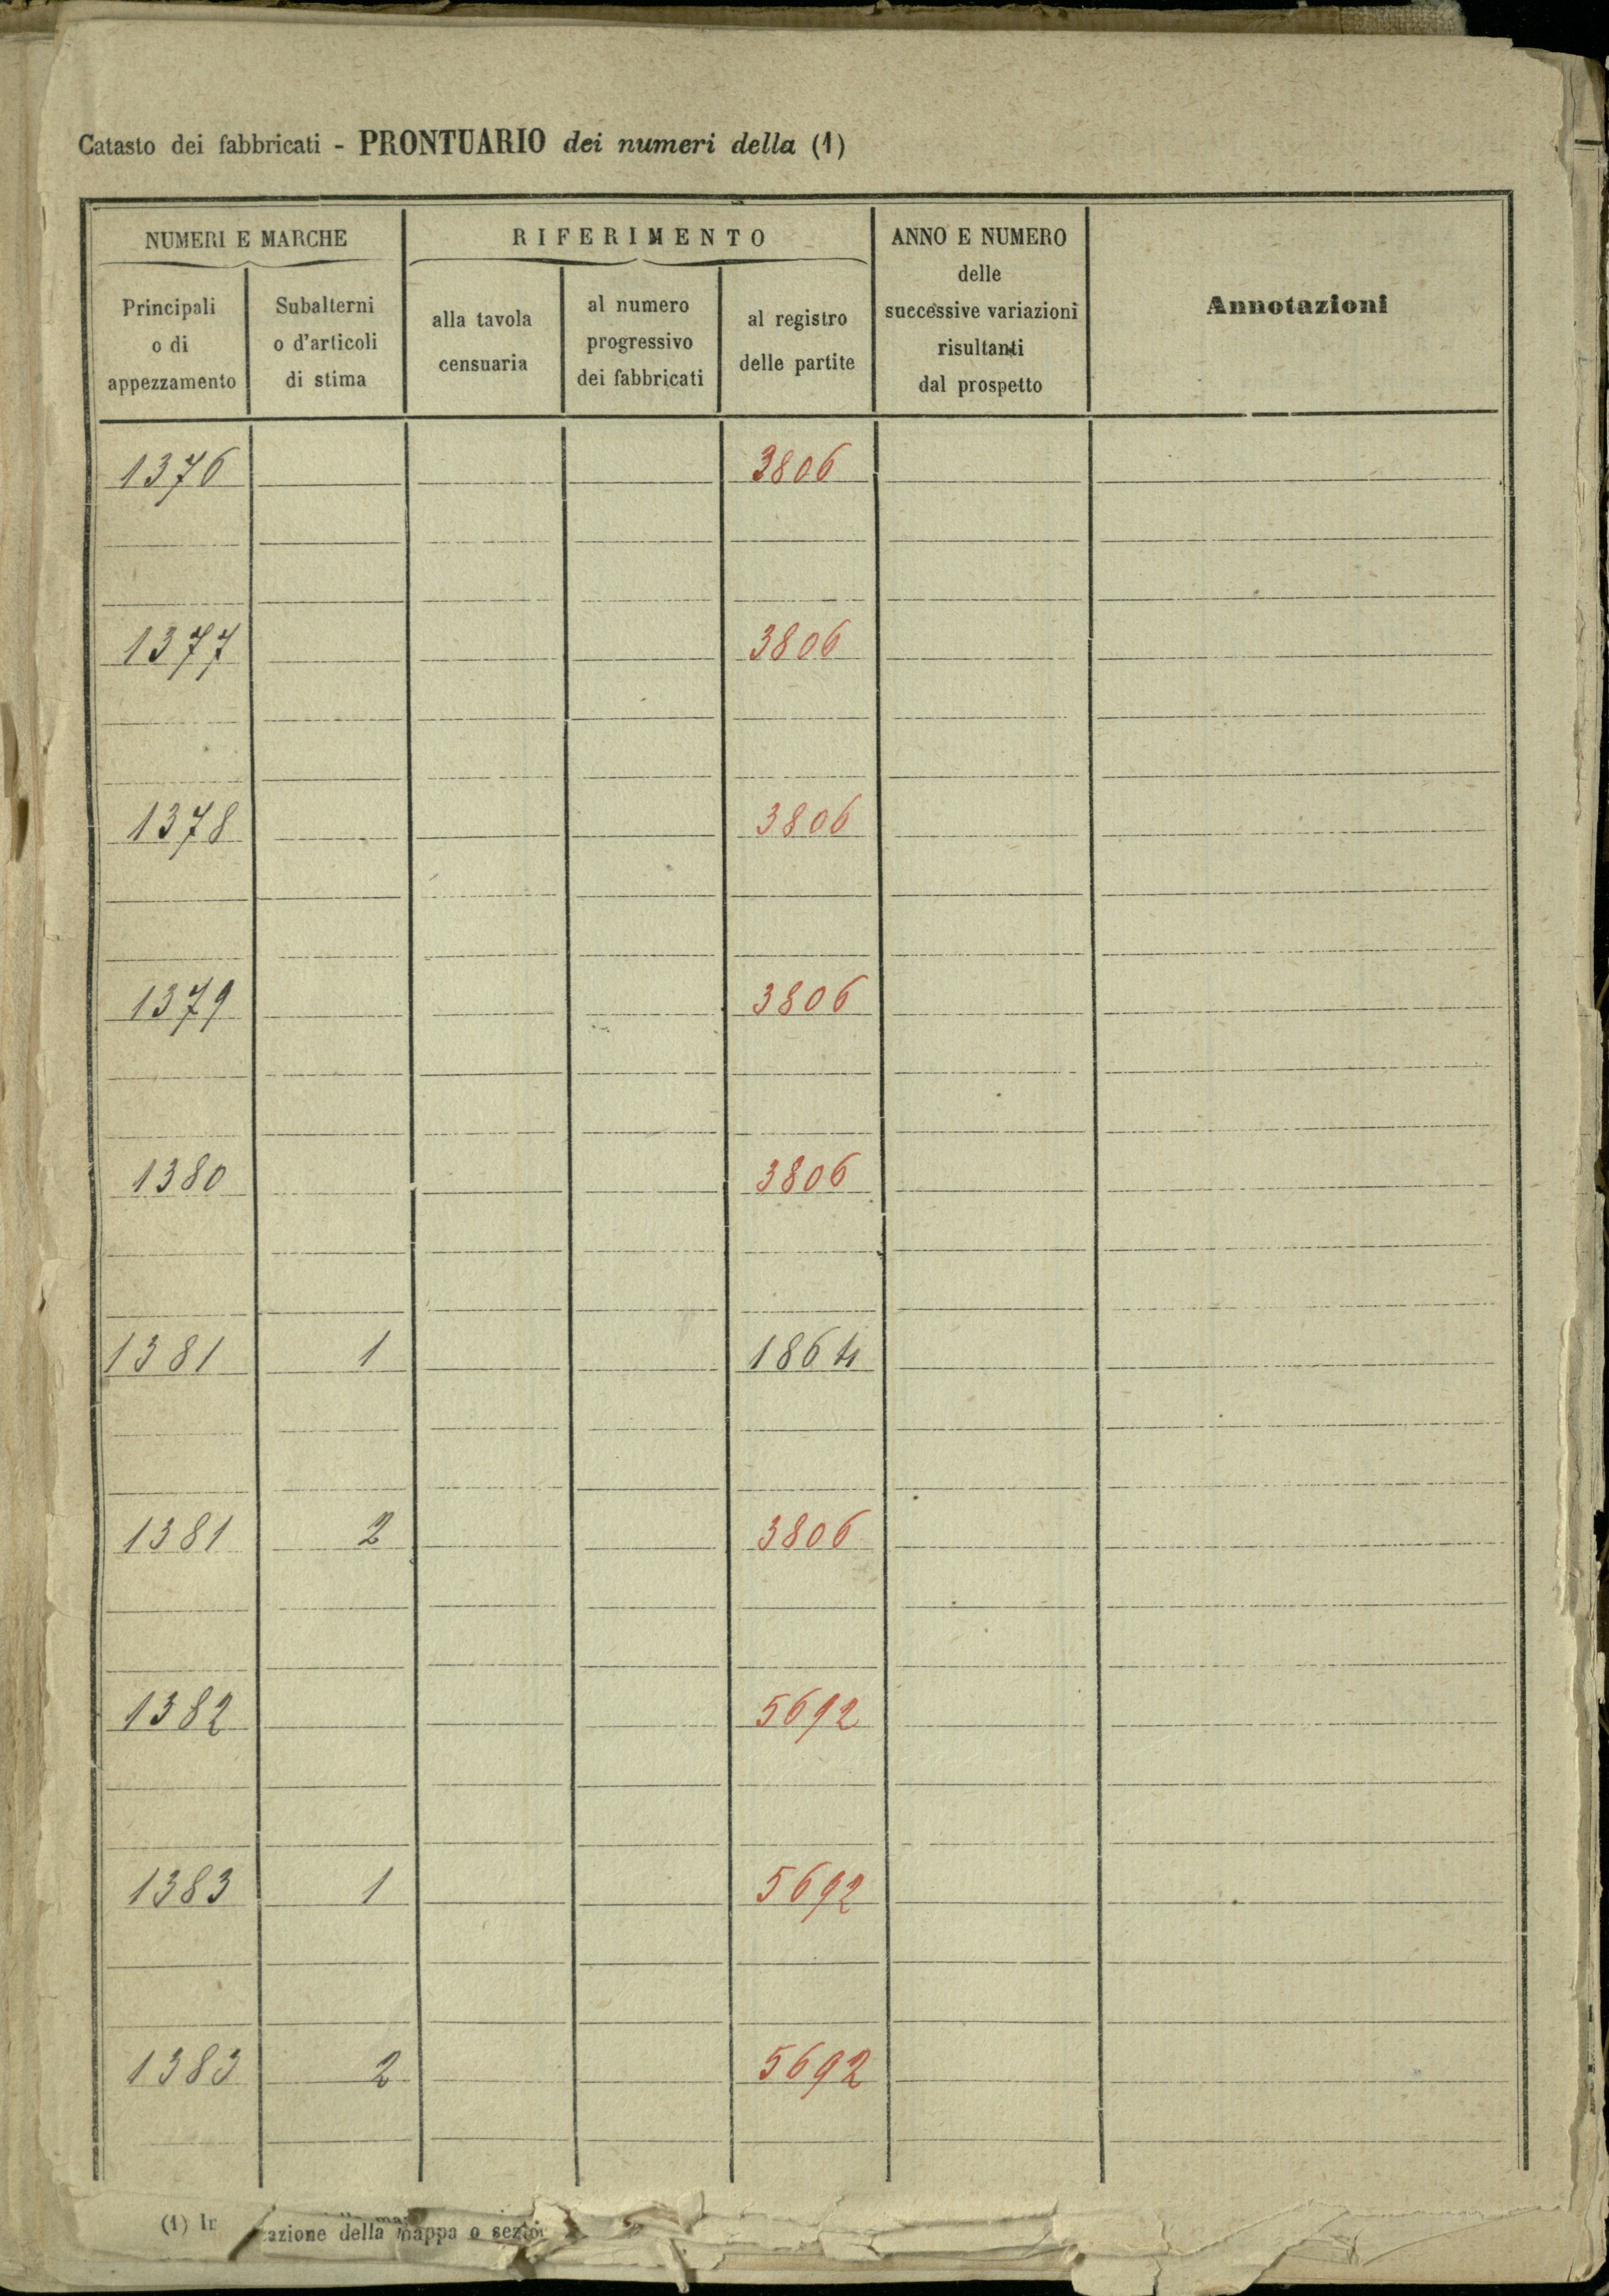 Catasto dei fabbricati - PRONTUARIO dei numeri della (1)
NUMERI E MARCHE
RIFERIMENTO
ANNO E NUMERO
delle
successive variazioni
risultanti
dal prospetto
Annotazioni
Principali
o di
appezzamento
Subalterni
o d'articoli
di stima
alla tavola
censuaria
al numero
progressivo
dei fabbricati
al registro
delle partite
1376 3806
1377 3806
1378 3806
1379 3806
1380 3806
1381 1 1864
1381 2 3806
1382 5692
1383 1 5692
1383 2 5692
(1) della mappa o